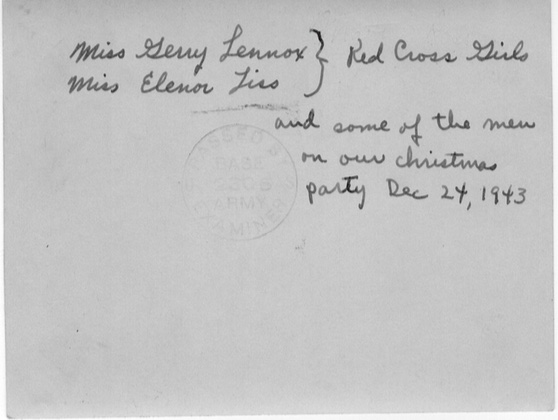 Miss Gerry Lennox } Red Cross Girls
Miss Elenor Liss
and some of the men
on our christmas
party Dec 24, 1943
PASSED BY
BASE
ARMY
EXAMINER